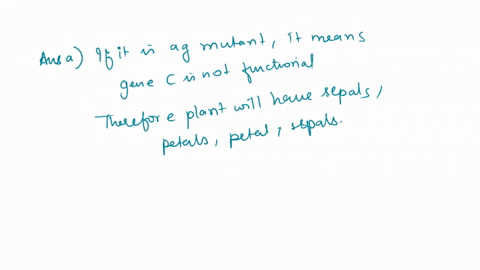 Ans a) If it is ag mutant, it means
gene C is not functional
Therefore plant will have sepals,
petals, petal, sepals.